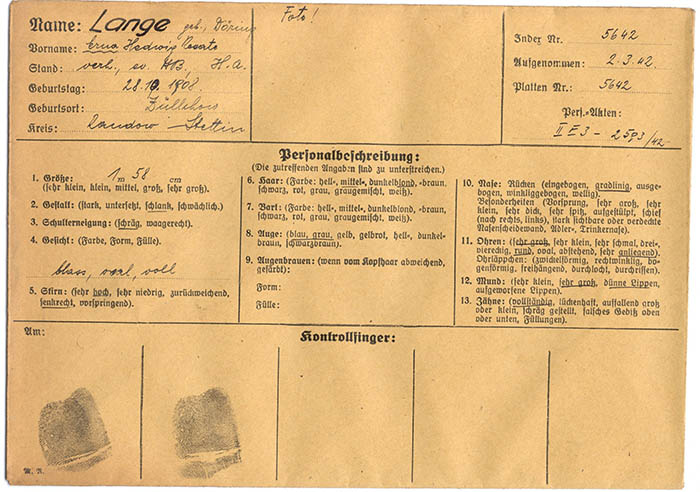 Name: Lange geb. Döring
Vorname: Erna Hedwig
Stand: verh., ev. H.A.
Geburtstag: 28.10.1908.
Geburtsort: Züllchow
Kreis: Randow - Stettin
Foto!
Index Nr. 5642
Aufgenommen: 2.3.42.
Platten Nr.: 5642
Pers.-Akten:
II E 3 - 2593/42.
Personalbeschreibung:
(Die zutreffenden Angaben sind zu unterstreichen.)
1. Größe: 1 m 58 cm
(sehr klein, klein, mittel, groß, sehr groß).
2. Gestalt: (stark, untersetzt, schlank, schwächlich.)
3. Schulterneigung: (schräg, waagerecht).
4. Gesicht: (Farbe, Form, Fülle).
blass, oval, voll
5. Stirn: (sehr hoch, sehr niedrig, zurückweichend,
senkrecht, vorspringend).
6. Haar: (Farbe: hell-, mittel-, dunkelblond, -braun,
schwarz, rot, grau, graugemischt, weiß).
7. Bart: (Farbe: hell-, mittel-, dunkelblond, -braun,
schwarz, rot, grau, graugemischt, weiß).
8. Auge: (blau, grau, gelb, gelbrot, hell-, dunkel-
braun, schwarzbraun).
9. Augenbrauen: (wenn vom Kopfhaar abweichend,
gefärbt):
Form:
Fülle:
10. Nase: Rücken (eingebogen, gradlinig, ausge-
bogen, winkliggebogen, wellig).
Besonderheiten (Vorsprung, sehr groß, sehr
klein, sehr dick, sehr spitz, aufgestülpt, schief
(nach rechts, links), stark sichtbare oder verdeckte
Nasenscheidewand, Adler-, Trinkernase).
11. Ohren: (sehr groß, sehr klein, sehr schmal, drei-,
viereckig, rund, oval, abstehend, sehr anliegend).
Ohrläppchen: (zwickelförmig, rechtwinklig, bo-
genförmig, freihängend, durchlocht, durchrissen).
12. Mund: (sehr klein, sehr groß, dünne Lippen,
aufgeworsene Lippen).
13. Zähne: (vollständig, lückenhaft, auffallend groß
oder klein, schräg gestellt, falsches Gebiß oben
oder unten, Füllungen).
Am:
Kontrollfinger: